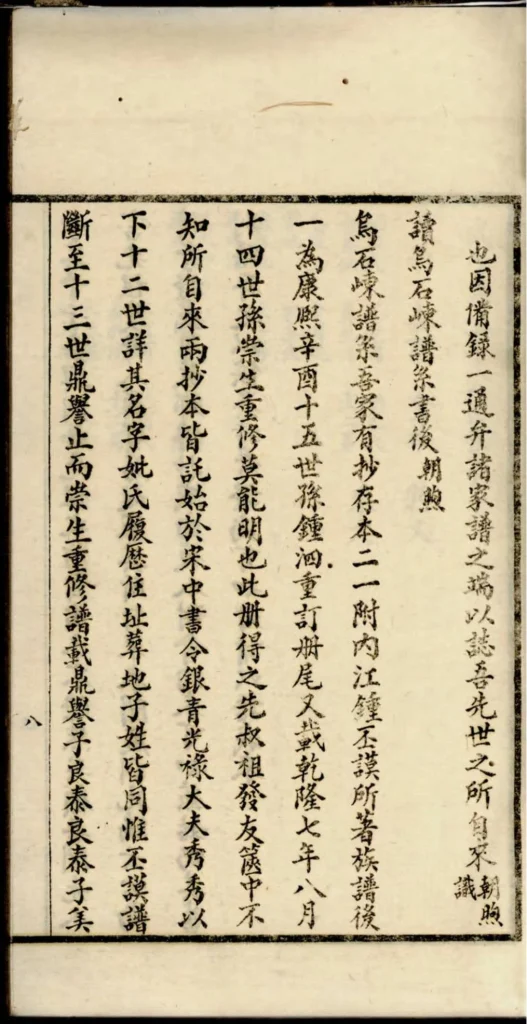 也因備錄一通弁諸家譜之端以誌吾先世之所自來朝煦識
讀烏石崠譜系書後 朝煦
烏石崠譜系吾家有抄存本二一附內江鍾丕謨所著族譜後
一為康熙辛酉十五世孫鍾泗重訂册尾又載乾隆七年八月
十四世孫崇生重修莫能明也此册得之先叔祖發友篋中不
知所自來兩抄本皆託始於宋中書令銀青光祿大夫秀秀以
下十二世詳其名字妣氏履歷住址葬地子姓皆同惟丕謨譜
斷至十三世鼎譽止而崇生重修譜載鼎譽子良泰良泰子美
八